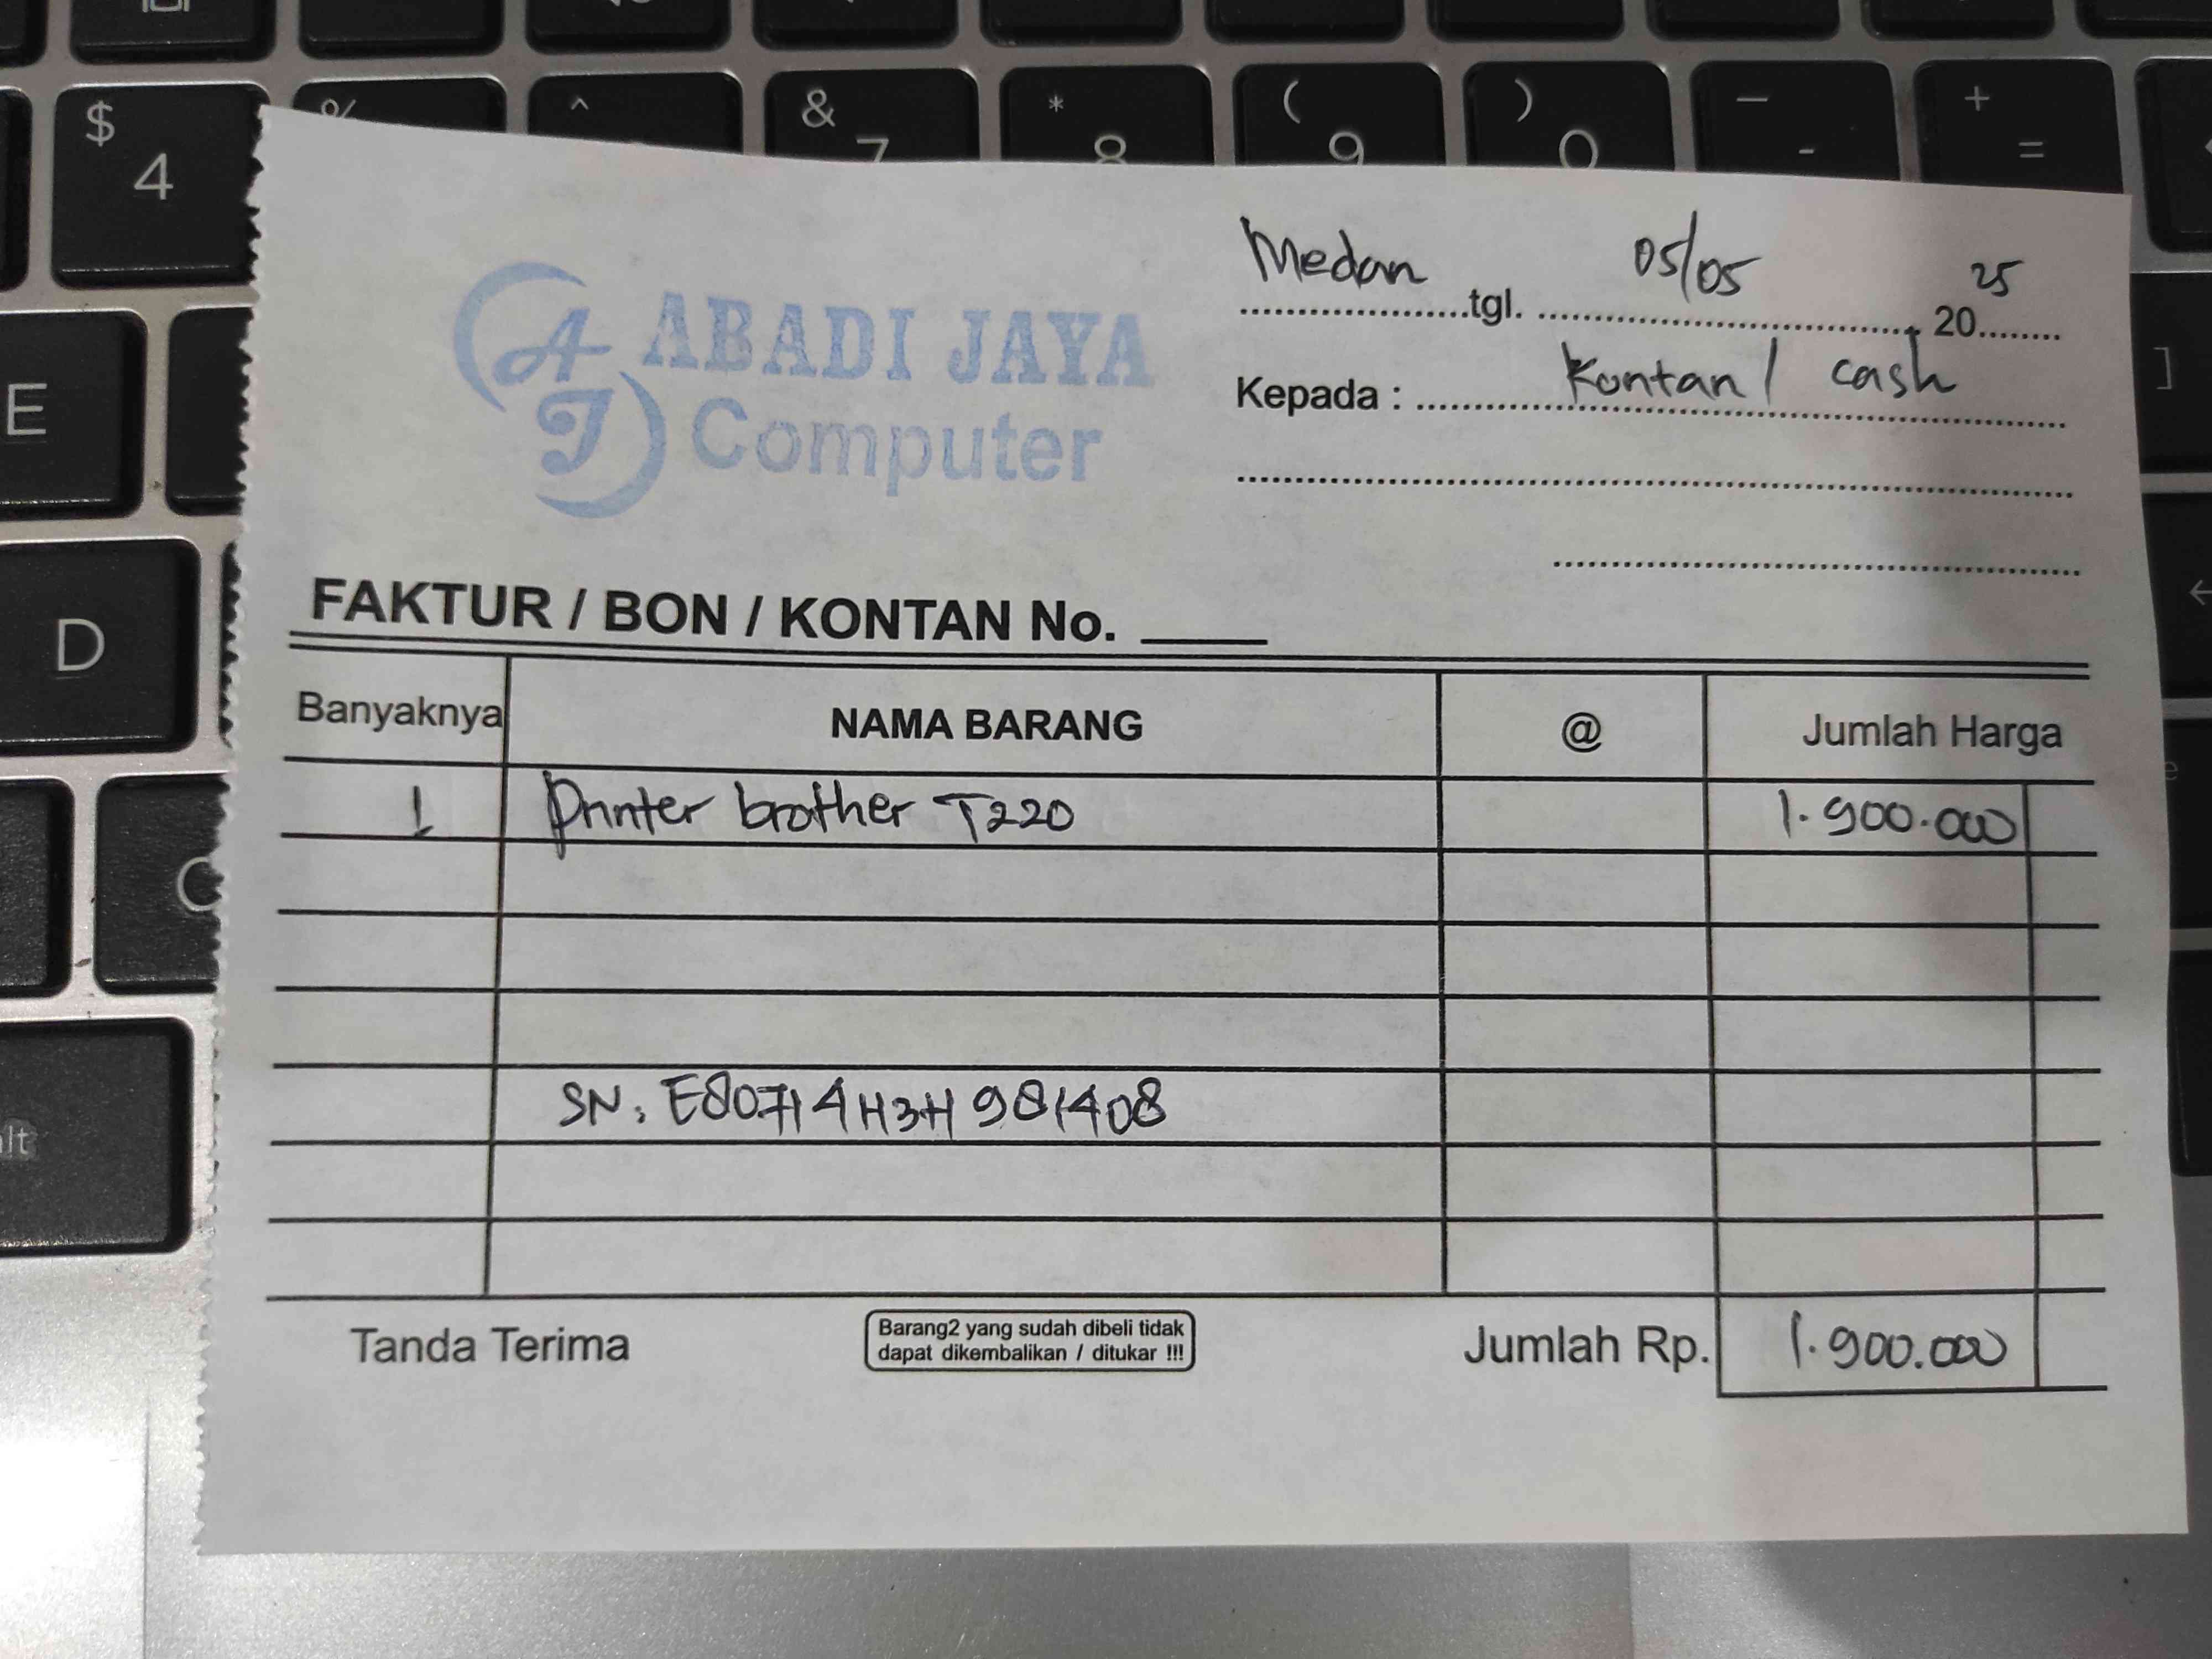 $ 4 % ^ & 7 * 8 ( 9 ) 0 — - + =
E
]
D
lt
Medan tgl. 05/05 2025
AJ ABADI JAYA
Computer
Kepada : Kontan / cash
FAKTUR / BON / KONTAN No.
Banyaknya NAMA BARANG @ Jumlah Harga
1 Printer brother T220 1.900.000
SN: E80714H3H981408
Tanda Terima
Barang2 yang sudah dibeli tidak
dapat dikembalikan / ditukar !!!
Jumlah Rp. 1.900.000